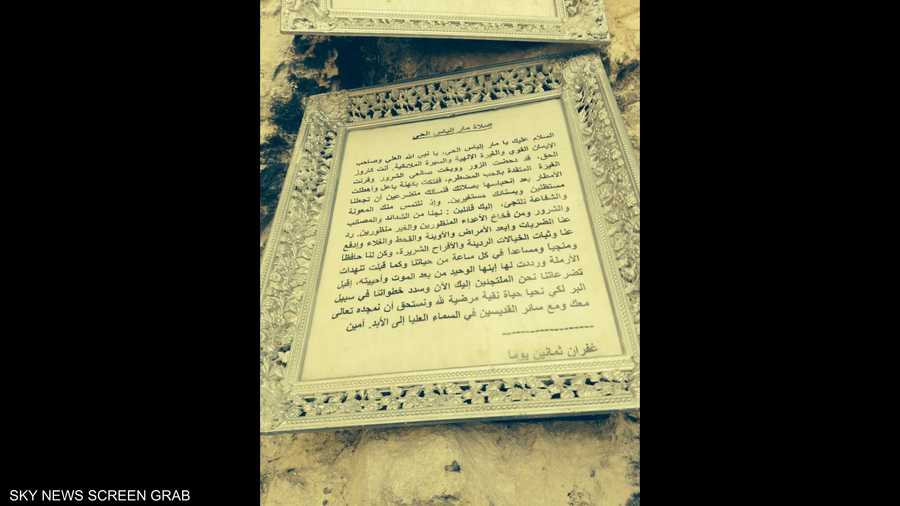 صلاة مار الياس الحي
السلام عليك يا مار إلياس الحي، يا نبي الله العلي وصاحب
الإيمان القوي والغيرة الإلهية والسيرة الملائكية. أنت كاروز
الحق، قد دحضت الزور ووبخت صانعي الشرور وقرنت
الغيرة المتقدة بالحب المضطرم، ففتكت بكهنة باعل وأهطلت
الأمطار بعد إنحباسها بصلاتك فنسألك متضرعين أن تجعلنا
مستظلين وبستانك مستغيرين. وإذ نلتمس منك المعونة
والشفاعة نلتجئ، إليك قائلين: نجنا من الشدائد والمصائب
والشرور ومن فخاخ الأعداء المنظورين والغير منظورين. رد
عنا الضربات وإبعد الأمراض والأوبئة والقحط والغلاء وإدفع
عنا وثبات الخيالات الردينة والأفراح الشريرة، وكن لنا حافظاً
ومنجياً ومساعداً في كل ساعة من حياتنا وكما قبلت تنهدات
الأرملة ورددت لها إبنها الوحيد من بعد الموت وأحييته، إقبل
تضرعاتنا نحن الملتجئين إليك الآن وسدد خطواتنا في سبيل
البر لكي نحيا حياة نقية مرضية لله ونستحق أن نمجده تعالى
معك ومع سائر القديسين في السماء العليا إلى الأبد. أمين
غفران ثمانين يوما
SKY NEWS SCREEN GRAB